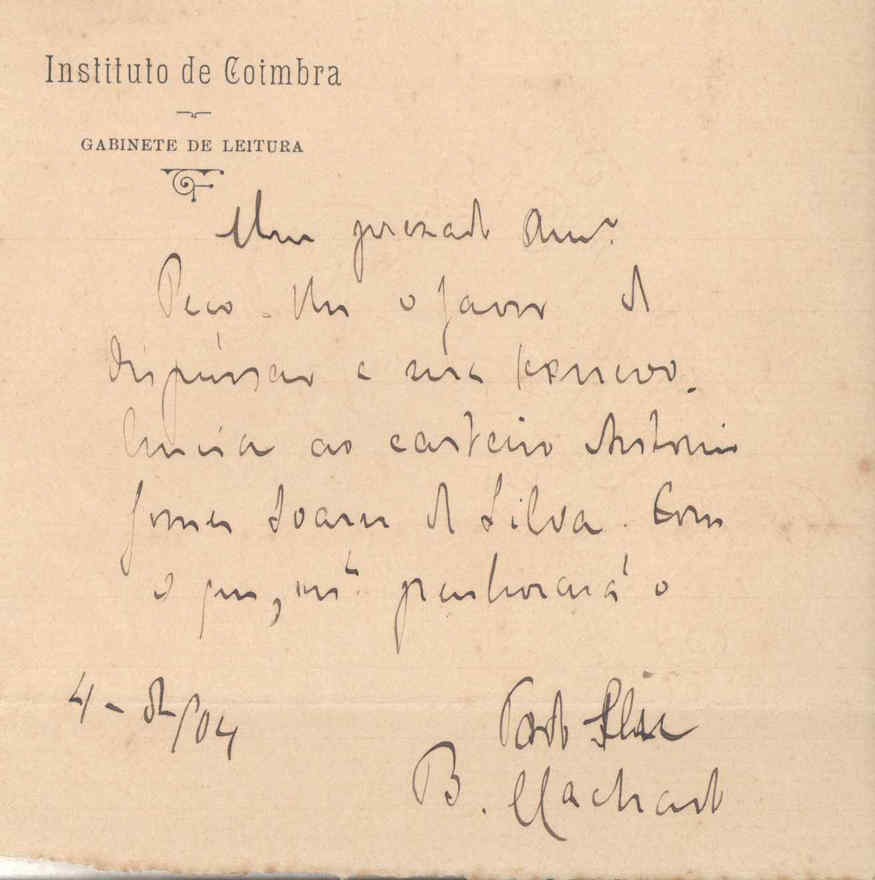 Instituto de Coimbra
GABINETE DE LEITURA
Meu prezado Amº.
Peço-lhe o favor de
dispensar a sua benevo-
lencia ao carteiro Antonio
Gomes Soares da Silva. Com
o que, mtº. penhorará o
4 - /04
B. Machado